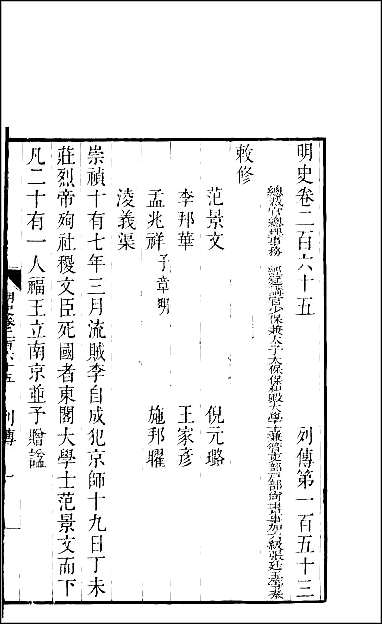 明史卷二百六十五 列傳第一百五十三
總裁官總理事務 經筵講官少保兼太子太保保和殿大學士兼管吏部戶部尚書事加六級張廷玉等奉
敕修
范景文 倪元璐
李邦華 王家彥
孟兆祥子章明 施邦曜
淩義渠
崇禎十有七年三月流賊李自成犯京師十九日丁未
莊烈帝殉社稷文臣死國者東閣大學士范景文而下
凡二十有一人福王立南京並予贈諡
明史卷二百六十五 列傳 一